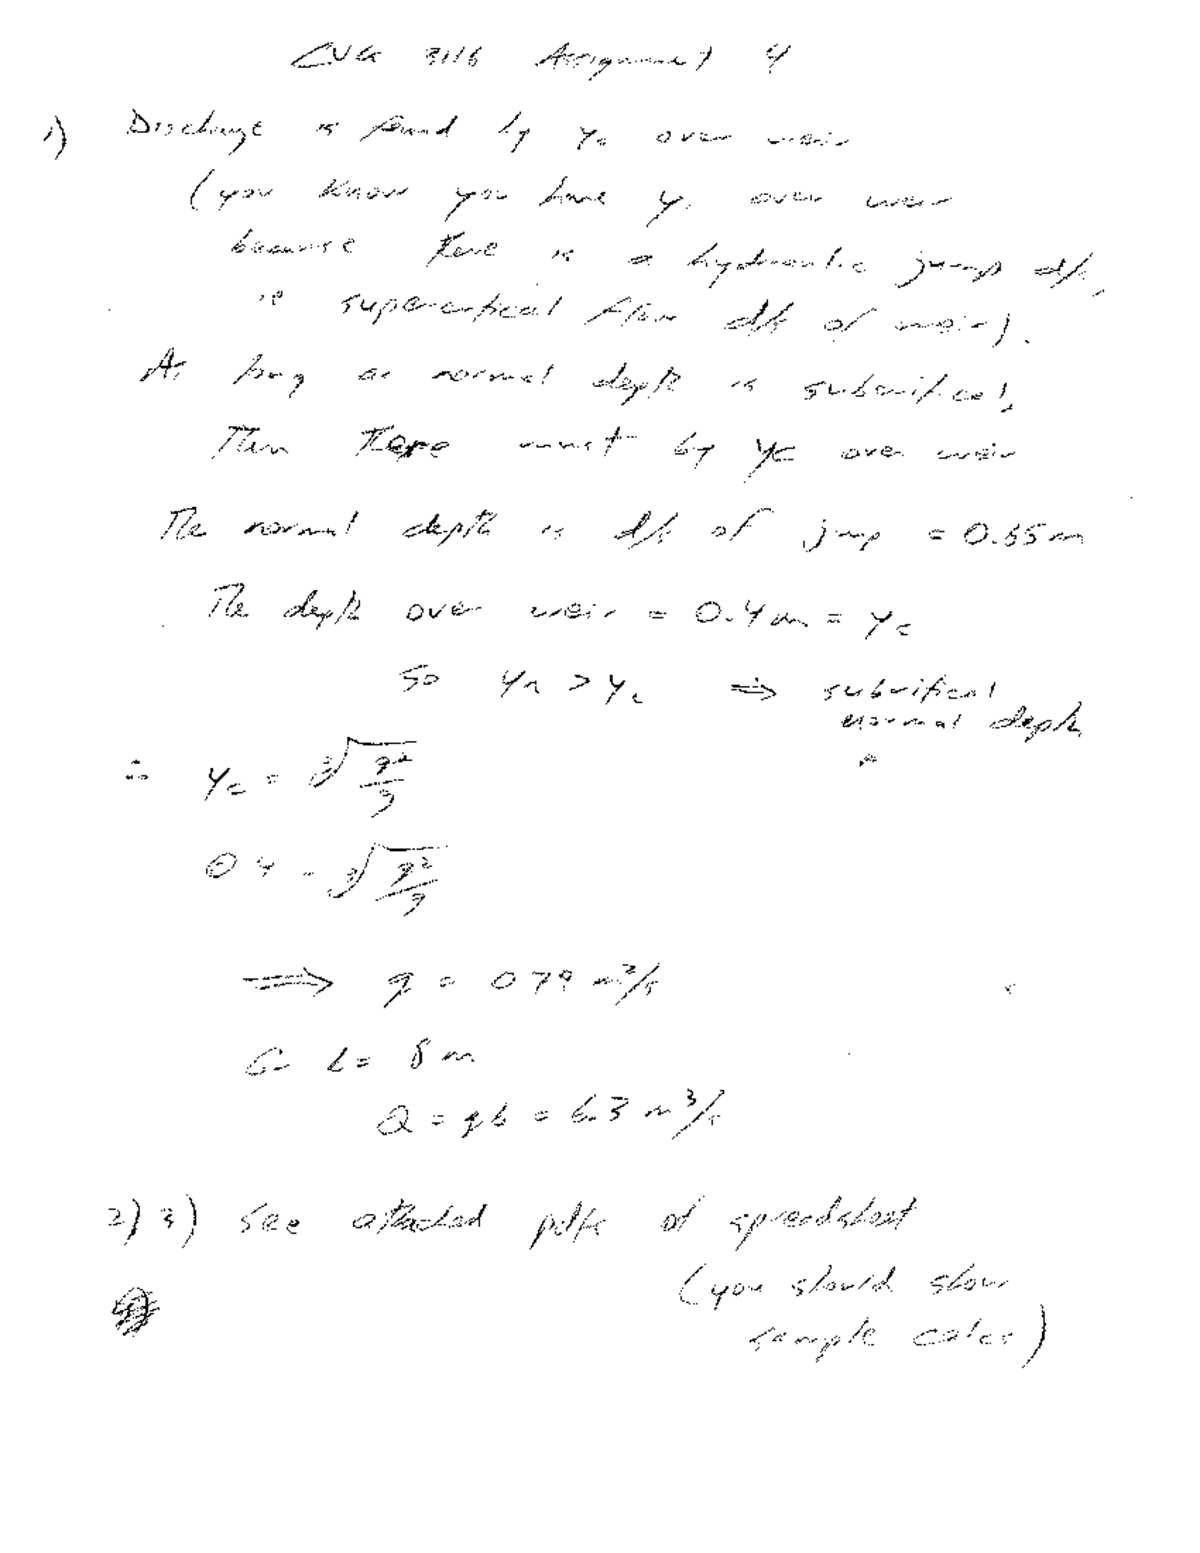 CVG 3116 Assignment 4
1) Discharge is found by yc over weir
(you know you have yc over weir
because there is a hydraulic jump d/s,
ie supercritical flow d/s of weir).
As long as normal depth is subcritical,
Then there must by yc over weir
The normal depth is d/s of jump = 0.55m
The depth over weir = 0.4m = yc
so yn > yc ⇒ subcritical
normal depth
∴ yc = ∛(q²/g)
0.4 = ∛(q²/g)
⇒ q = 0.79 m²/s
b = 8m
Q = qb = 6.3 m³/s
2) 3) see attached of spreadsheet
(you should show
sample calcs)